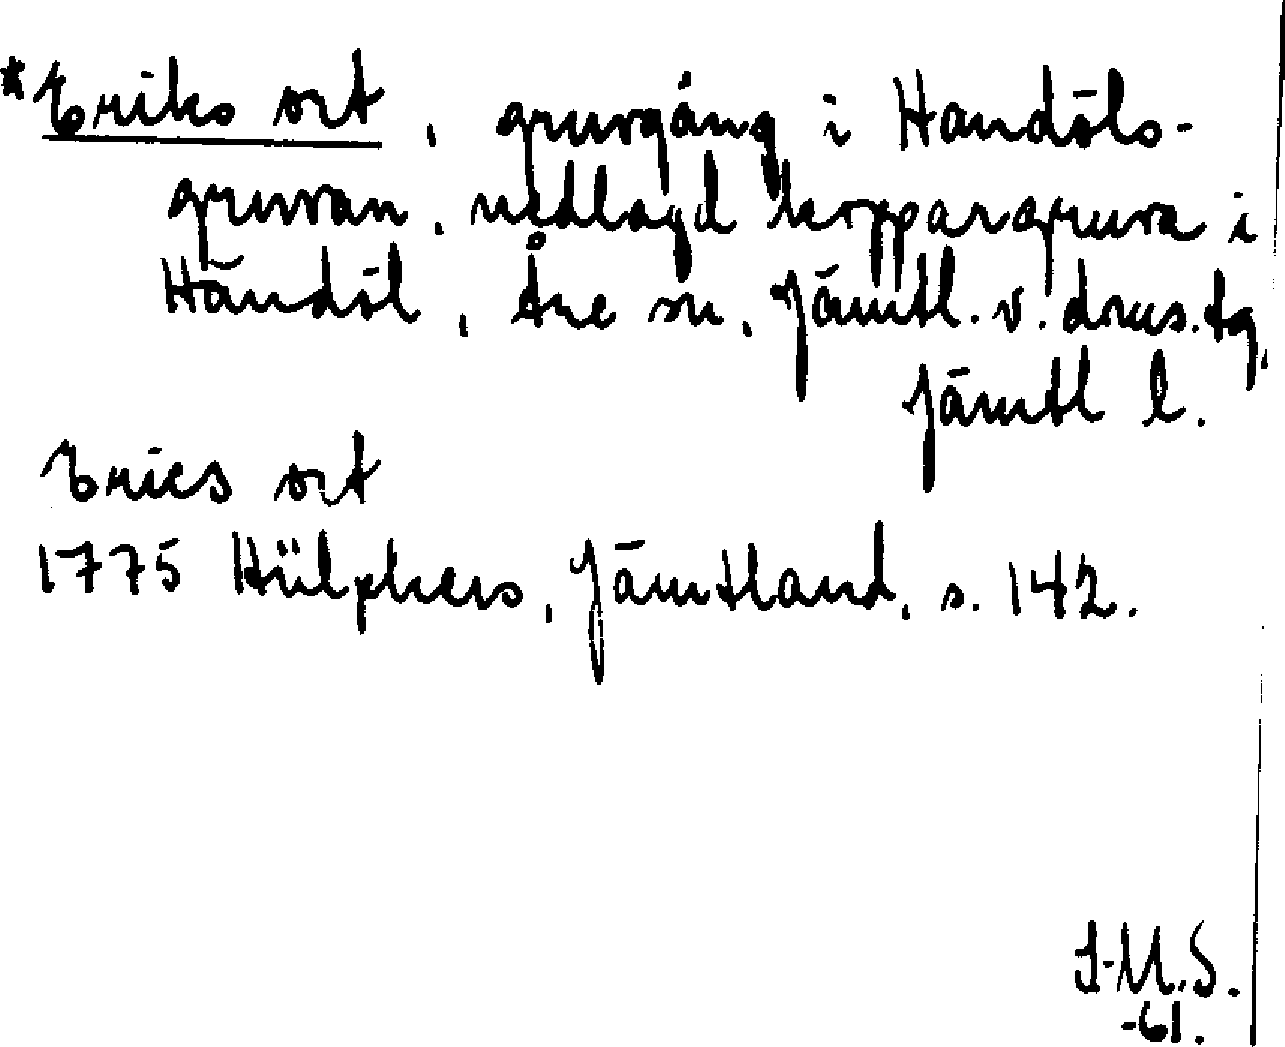 *Eriks ort, gruvgång i Handöls-
gruvan, nedlagd koppargruva i
Handöl, Åre sn, Jämtl. v. doms.tg,
Jämtl l.
Erics ort
1775 Hülphers, Jämtland, s. 142.
I-M.S.
-61.